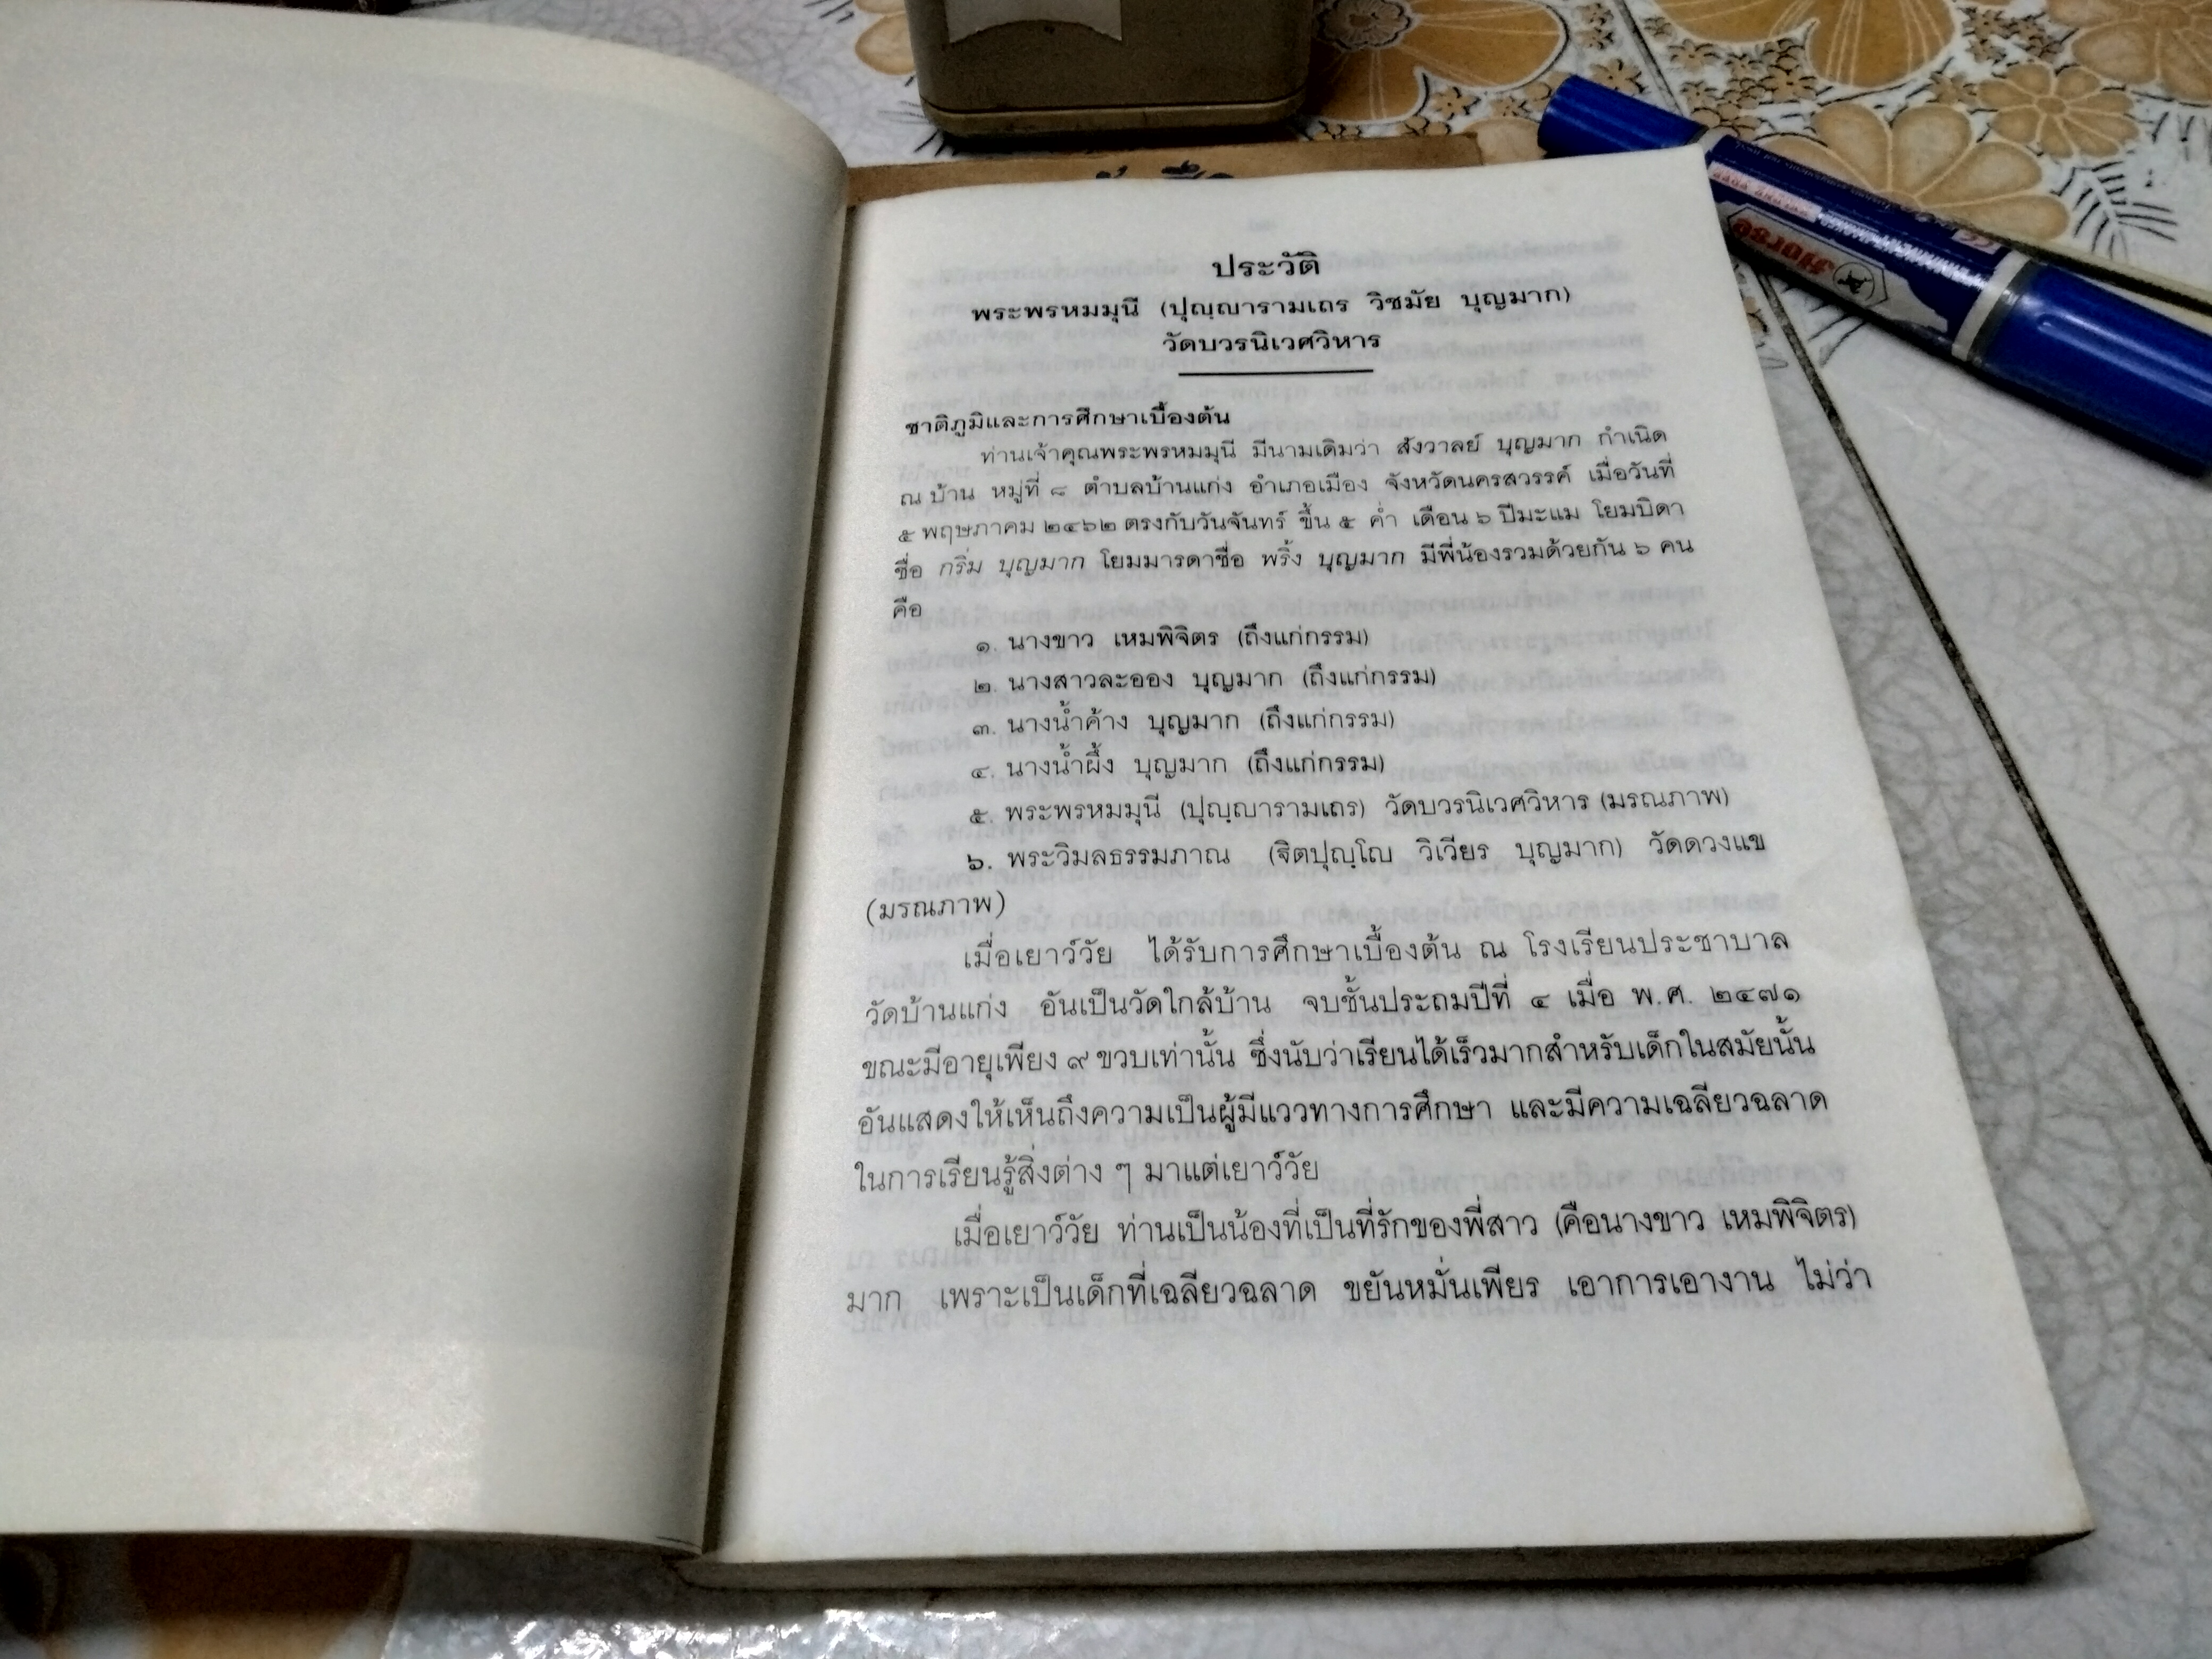 ประวัติ
พระพรหมมุนี (ปุญฺญารามเถร วิชมัย บุญมาก)
วัดบวรนิเวศวิหาร
ชาติภูมิและการศึกษาเบื้องต้น
ท่านเจ้าคุณพระพรหมมุนี มีนามเดิมว่า สังวาลย์ บุญมาก กำเนิด
ณ บ้าน หมู่ที่ ๘ ตำบลบ้านแก่ง อำเภอเมือง จังหวัดนครสวรรค์ เมื่อวันที่
๕ พฤษภาคม ๒๔๖๒ ตรงกับวันจันทร์ ขึ้น ๕ ค่ำ เดือน ๖ ปีมะแม โยมบิดา
ชื่อ กริ่ม บุญมาก โยมมารดาชื่อ พริ้ง บุญมาก มีพี่น้องรวมด้วยกัน ๖ คน
คือ
๑. นางขาว เหมพิจิตร (ถึงแก่กรรม)
๒. นางสาวละออง บุญมาก (ถึงแก่กรรม)
๓. นางน้ำค้าง บุญมาก (ถึงแก่กรรม)
๔. นางน้ำผึ้ง บุญมาก (ถึงแก่กรรม)
๕. พระพรหมมุนี (ปุญฺญารามเถร) วัดบวรนิเวศวิหาร (มรณภาพ)
๖. พระวิมลธรรมภาณ (ฐิตปุญฺโญ วิเวียร บุญมาก) วัดดวงแข
(มรณภาพ)
เมื่อเยาว์วัย ได้รับการศึกษาเบื้องต้น ณ โรงเรียนประชาบาล
วัดบ้านแก่ง อันเป็นวัดใกล้บ้าน จบชั้นประถมปีที่ ๔ เมื่อ พ.ศ. ๒๔๗๑
ขณะมีอายุเพียง ๙ ขวบเท่านั้น ซึ่งนับว่าเรียนได้เร็วมากสำหรับเด็กในสมัยนั้น
อันแสดงให้เห็นถึงความเป็นผู้มีแววทางการศึกษา และมีความเฉลียวฉลาด
ในการเรียนรู้สิ่งต่าง ๆ มาแต่เยาว์วัย
เมื่อเยาว์วัย ท่านเป็นน้องที่เป็นที่รักของพี่สาว (คือนางขาว เหมพิจิตร)
มาก เพราะเป็นเด็กที่เฉลียวฉลาด ขยันหมั่นเพียร เอาการเอางาน ไม่ว่า
Horse